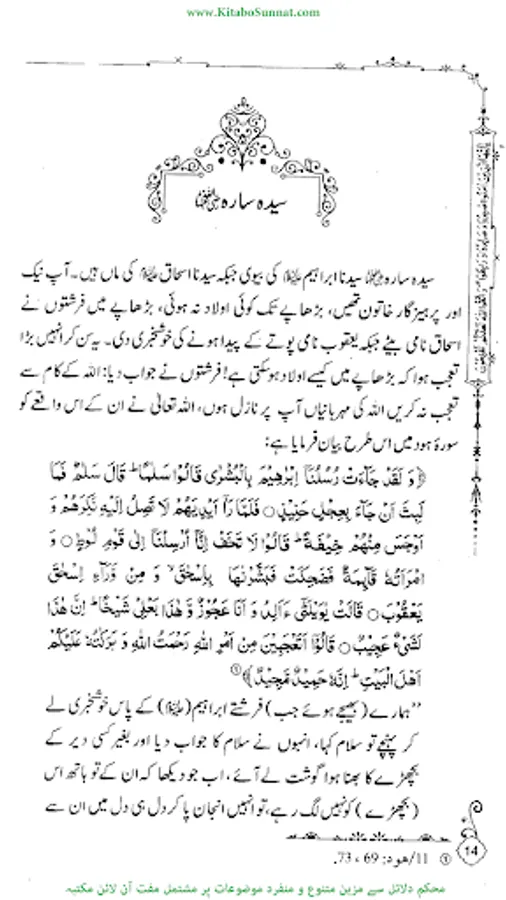 www.KitaboSunnat.com
سیدہ سارہ علیہا السلام
سیدہ سارہ علیہا السلام سیدنا ابراہیم علیہ السلام کی بیوی جبکہ سیدنا اسحاق علیہ السلام کی ماں ہیں۔ آپ نیک
اور پرہیز گار خاتون تھیں، بڑھاپے تک کوئی اولاد نہ ہوئی، بڑھاپے میں فرشتوں نے
اسحاق نامی بیٹے جبکہ یعقوب نامی پوتے کے پیدا ہونے کی خوشخبری دی۔ یہ سن کر انہیں بڑا
تعجب ہوا کہ بڑھاپے میں کیسے اولاد ہوسکتی ہے! فرشتوں نے جواب دیا: اللہ کے کام سے
تعجب نہ کریں اللہ کی مہربانیاں آپ پر نازل ہوں، اللہ تعالیٰ نے ان کے اس واقعے کو
سورۂ ہود میں اس طرح بیان فرمایا ہے:
﴿وَ لَقَدْ جَآءَتْ رُسُلُنَاۤ اِبْرٰهِيْمَ بِالْبُشْرٰى قَالُوْا سَلٰمًا١ؕ قَالَ سَلٰمٌ فَمَا
لَبِثَ اَنْ جَآءَ بِعِجْلٍ حَنِيْذٍ○ فَلَمَّا رَاٰۤ اَيْدِيَهُمْ لَا تَصِلُ اِلَيْهِ نَكِرَهُمْ وَ
اَوْجَسَ مِنْهُمْ خِيْفَةً١ؕ قَالُوْا لَا تَخَفْ اِنَّاۤ اُرْسِلْنَاۤ اِلٰى قَوْمِ لُوْطٍ○ وَ
امْرَاَتُهٗ قَآىِٕمَةٌ فَضَحِكَتْ فَبَشَّرْنٰهَا بِاِسْحٰقَ١ۙ وَ مِنْ وَّرَآءِ اِسْحٰقَ
يَعْقُوْبَ○ قَالَتْ يٰوَيْلَتٰۤى ءَاَلِدُ وَ اَنَا عَجُوْزٌ وَّ هٰذَا بَعْلِيْ شَيْخًا١ؕ اِنَّ هٰذَا
لَشَيْءٌ عَجِيْبٌ○ قَالُوْۤا اَتَعْجَبِيْنَ مِنْ اَمْرِ اللّٰهِ رَحْمَتُ اللّٰهِ وَ بَرَكٰتُهٗ عَلَيْكُمْ
اَهْلَ الْبَيْتِ١ؕ اِنَّهٗ حَمِيْدٌ مَّجِيْدٌ﴾①
”ہمارے (بھیجے ہوئے جب) فرشتے ابراہیم (علیہ السلام) کے پاس خوشخبری لے
کر پہنچے تو سلام کہا، انہوں نے سلام کا جواب دیا اور بغیر کسی دیر کے
بچھڑے کا بھنا ہوا گوشت لے آئے، اب جو دیکھا کہ ان کے تو ہاتھ اس
(بچھڑے) کو نہیں لگ رہے، تو انہیں انجان پا کر دل ہی دل میں ان سے
① 11/هود: 69 ، 73.
14
محکم دلائل سے مزین متنوع و منفرد موضوعات پر مشتمل مفت آن لائن مکتبہ